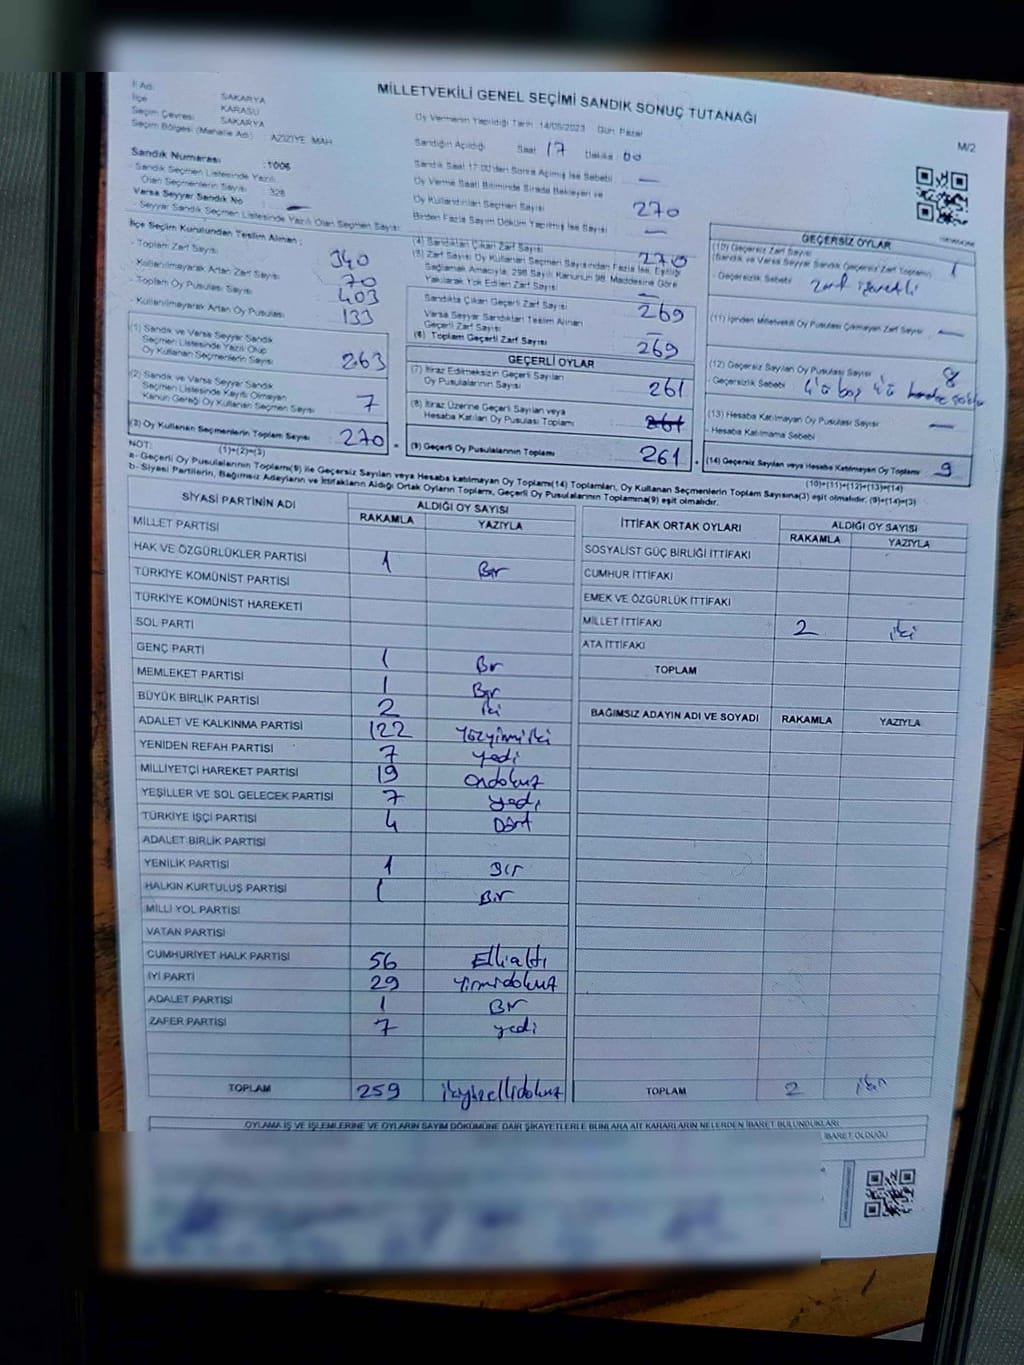 MİLLETVEKİLİ GENEL SEÇİMİ SANDIK SONUÇ TUTANAĞI
M/2
İl Adı: SAKARYA
İlçe KARASU
Seçim Çevresi SAKARYA
Seçim Bölgesi (Mahalle Adı) AZİZİYE MAH
Sandık Numarası : 1006
- Sandık Seçmen Listesinde Yazılı
Olan Seçmenlerin Sayısı : 328
Varsa Seyyar Sandık No —
- Seyyar Sandık Seçmen Listesinde Yazılı Olan Seçmen Sayısı
Oy Vermenin Yapıldığı Tarih :14/05/2023 Gün Pazar
Sandığın Açıldığı Saat 17 Dakika 00
Sandık Saat 17:00'den Sonra Açılmış İse Sebebi —
Oy Verme Saati Bitiminde Sırada Bekleyen ve
Oy Kullandırılan Seçmen Sayısı 270
Birden Fazla Sayım Döküm Yapılmış İse Sayısı —
İlçe Seçim Kurulundan Teslim Alınan :
- Toplam Zarf Sayısı 340
- Kullanılmayarak Artan Zarf Sayısı 70
- Toplam Oy Pusulası Sayısı 403
- Kullanılmayarak Artan Oy Pusulası 133
(1) Sandık ve Varsa Seyyar Sandık
Seçmen Listesinde Yazılı Olup
Oy Kullanan Seçmenlerin Sayısı 263
(2) Sandık ve Varsa Seyyar Sandık
Seçmen Listesinde Kayıtlı Olmayan
Kanun Gereği Oy Kullanan Seçmen Sayısı 7
(3) Oy Kullanan Seçmenlerin Toplam Sayısı 270
(1)+(2)=(3)
(4) Sandıktan Çıkan Zarf Sayısı 270
(5) Zarf Sayısı Oy Kullanan Seçmen Sayısından Fazla İse, Eşitliği
Sağlamak Amacıyla, 298 Sayılı Kanunun 98. Maddesine Göre
Yakılarak Yok Edilen Zarf Sayısı —
Sandıkta Çıkan Geçerli Zarf Sayısı 269
Varsa Seyyar Sandıktan Teslim Alınan
Geçerli Zarf Sayısı —
(6) Toplam Geçerli Zarf Sayısı 269
GEÇERLİ OYLAR
(7) İtiraz Edilmeksizin Geçerli Sayılan
Oy Pusulalarının Sayısı 261
(8) İtiraz Üzerine Geçerli Sayılan veya
Hesaba Katılan Oy Pusulası Toplamı 261
(9) Geçerli Oy Pusulalarının Toplamı 261
GEÇERSİZ OYLAR
(10) Geçersiz Zarf Sayısı 1
(Sandık ve Varsa Seyyar Sandık Geçersiz Zarf Toplamı)
- Geçersizlik Sebebi zarf işaretli
(11) İçinden Milletvekili Oy Pusulası Çıkmayan Zarf Sayısı —
(12) Geçersiz Sayılan Oy Pusulası Sayısı 8
- Geçersizlik Sebebi 4'ü boş 4'ü
(13) Hesaba Katılmayan Oy Pusulası Sayısı —
- Hesaba Katılmama Sebebi
(14) Geçersiz Sayılan veya Hesaba Katılmayan Oy Toplamı 9
(10)+(11)+(12)+(13)=(14)
NOT:
a- Geçerli Oy Pusulalarının Toplamı(9) ile Geçersiz Sayılan veya Hesaba katılmayan Oy Toplamı(14) Toplamları, Oy Kullanan Seçmenlerin Toplam Sayısına(3) eşit olmalıdır. (9)+(14)=(3)
b- Siyasi Partilerin, Bağımsız Adayların ve İttifakların Aldığı Ortak Oyların Toplamı, Geçerli Oy Pusulalarının Toplamına(9) eşit olmalıdır.
SİYASİ PARTİNİN ADI ALDIĞI OY SAYISI
RAKAMLA YAZIYLA
MİLLET PARTİSİ
HAK VE ÖZGÜRLÜKLER PARTİSİ 1 Bir
TÜRKİYE KOMÜNİST PARTİSİ
TÜRKİYE KOMÜNİST HAREKETİ
SOL PARTİ
GENÇ PARTİ 1 Bir
MEMLEKET PARTİSİ 1 Bir
BÜYÜK BİRLİK PARTİSİ 2 iki
ADALET VE KALKINMA PARTİSİ 122 Yüzyirmiiki
YENİDEN REFAH PARTİSİ 7 yedi
MİLLİYETÇİ HAREKET PARTİSİ 19 ondokuz
YEŞİLLER VE SOL GELECEK PARTİSİ 7 yedi
TÜRKİYE İŞÇİ PARTİSİ 4 Dört
ADALET BİRLİK PARTİSİ
YENİLİK PARTİSİ 1 Bir
HALKIN KURTULUŞ PARTİSİ 1 Bir
MİLLİ YOL PARTİSİ
VATAN PARTİSİ
CUMHURİYET HALK PARTİSİ 56 Elli altı
İYİ PARTİ 29 Yirmidokuz
ADALET PARTİSİ 1 Bir
ZAFER PARTİSİ 7 yedi
TOPLAM 259 ikiyüzellidokuz
İTTİFAK ORTAK OYLARI ALDIĞI OY SAYISI
RAKAMLA YAZIYLA
SOSYALİST GÜÇ BİRLİĞİ İTTİFAKI
CUMHUR İTTİFAKI
EMEK VE ÖZGÜRLÜK İTTİFAKI
MİLLET İTTİFAKI 2 iki
ATA İTTİFAKI
TOPLAM
BAĞIMSIZ ADAYIN ADI VE SOYADI RAKAMLA YAZIYLA
TOPLAM 2
OYLAMA İŞ VE İŞLEMLERİNE VE OYLARIN SAYIM DÖKÜMÜNE DAİR ŞİKAYETLERLE BUNLARA AİT KARARLARIN NELERDEN İBARET BULUNDUKLARI
İBARET OLDUĞU